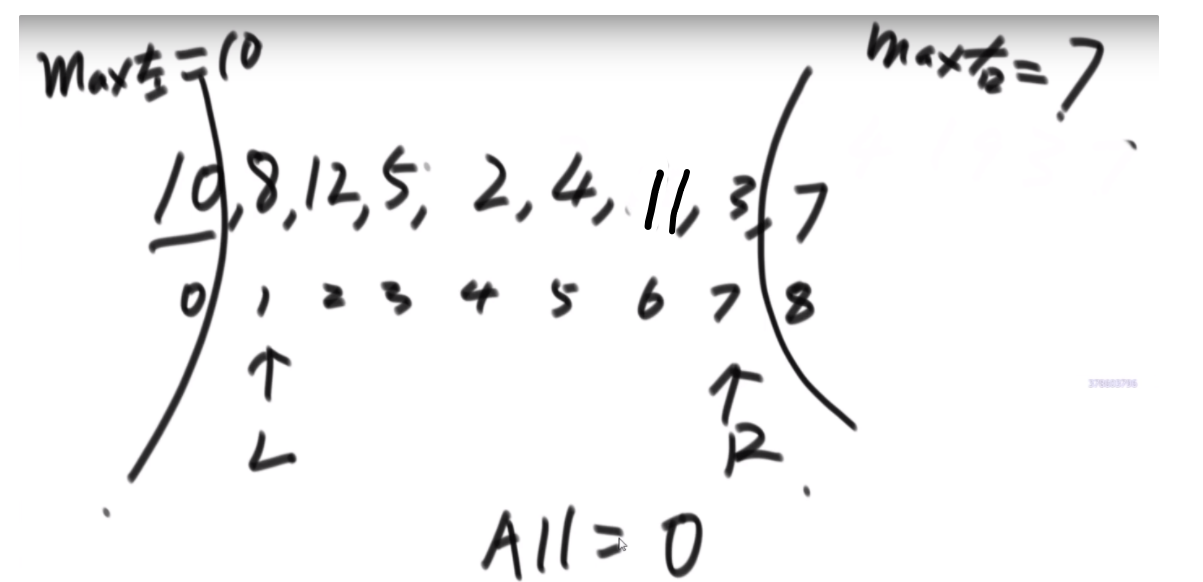 max左=10
max右=7
10,8,12,5,2,4,11,3,7
0 1 2 3 4 5 6 7 8
L R
All=0